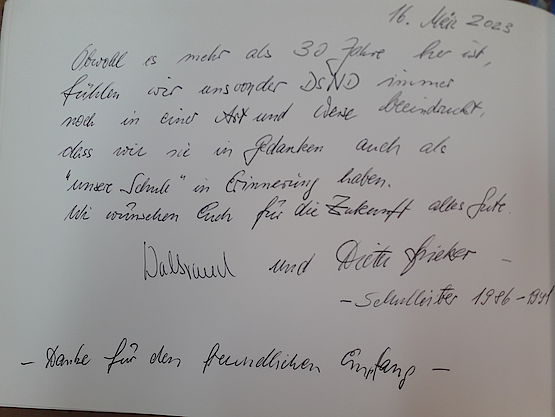 16. März 2023
Obwohl es mehr als 30 Jahre her ist,
fühlen wir uns von der DSND immer
noch in einer Art und Weise beeindruckt,
dass wir sie in Gedanken auch als
"unser Schule" in Erinnerung haben.
Wir wünschen Euch für die Zukunft alles Gute.
Waltraud und Dieter
- Schulleiter 1986-1991
- Danke für den freundlichen Empfang -